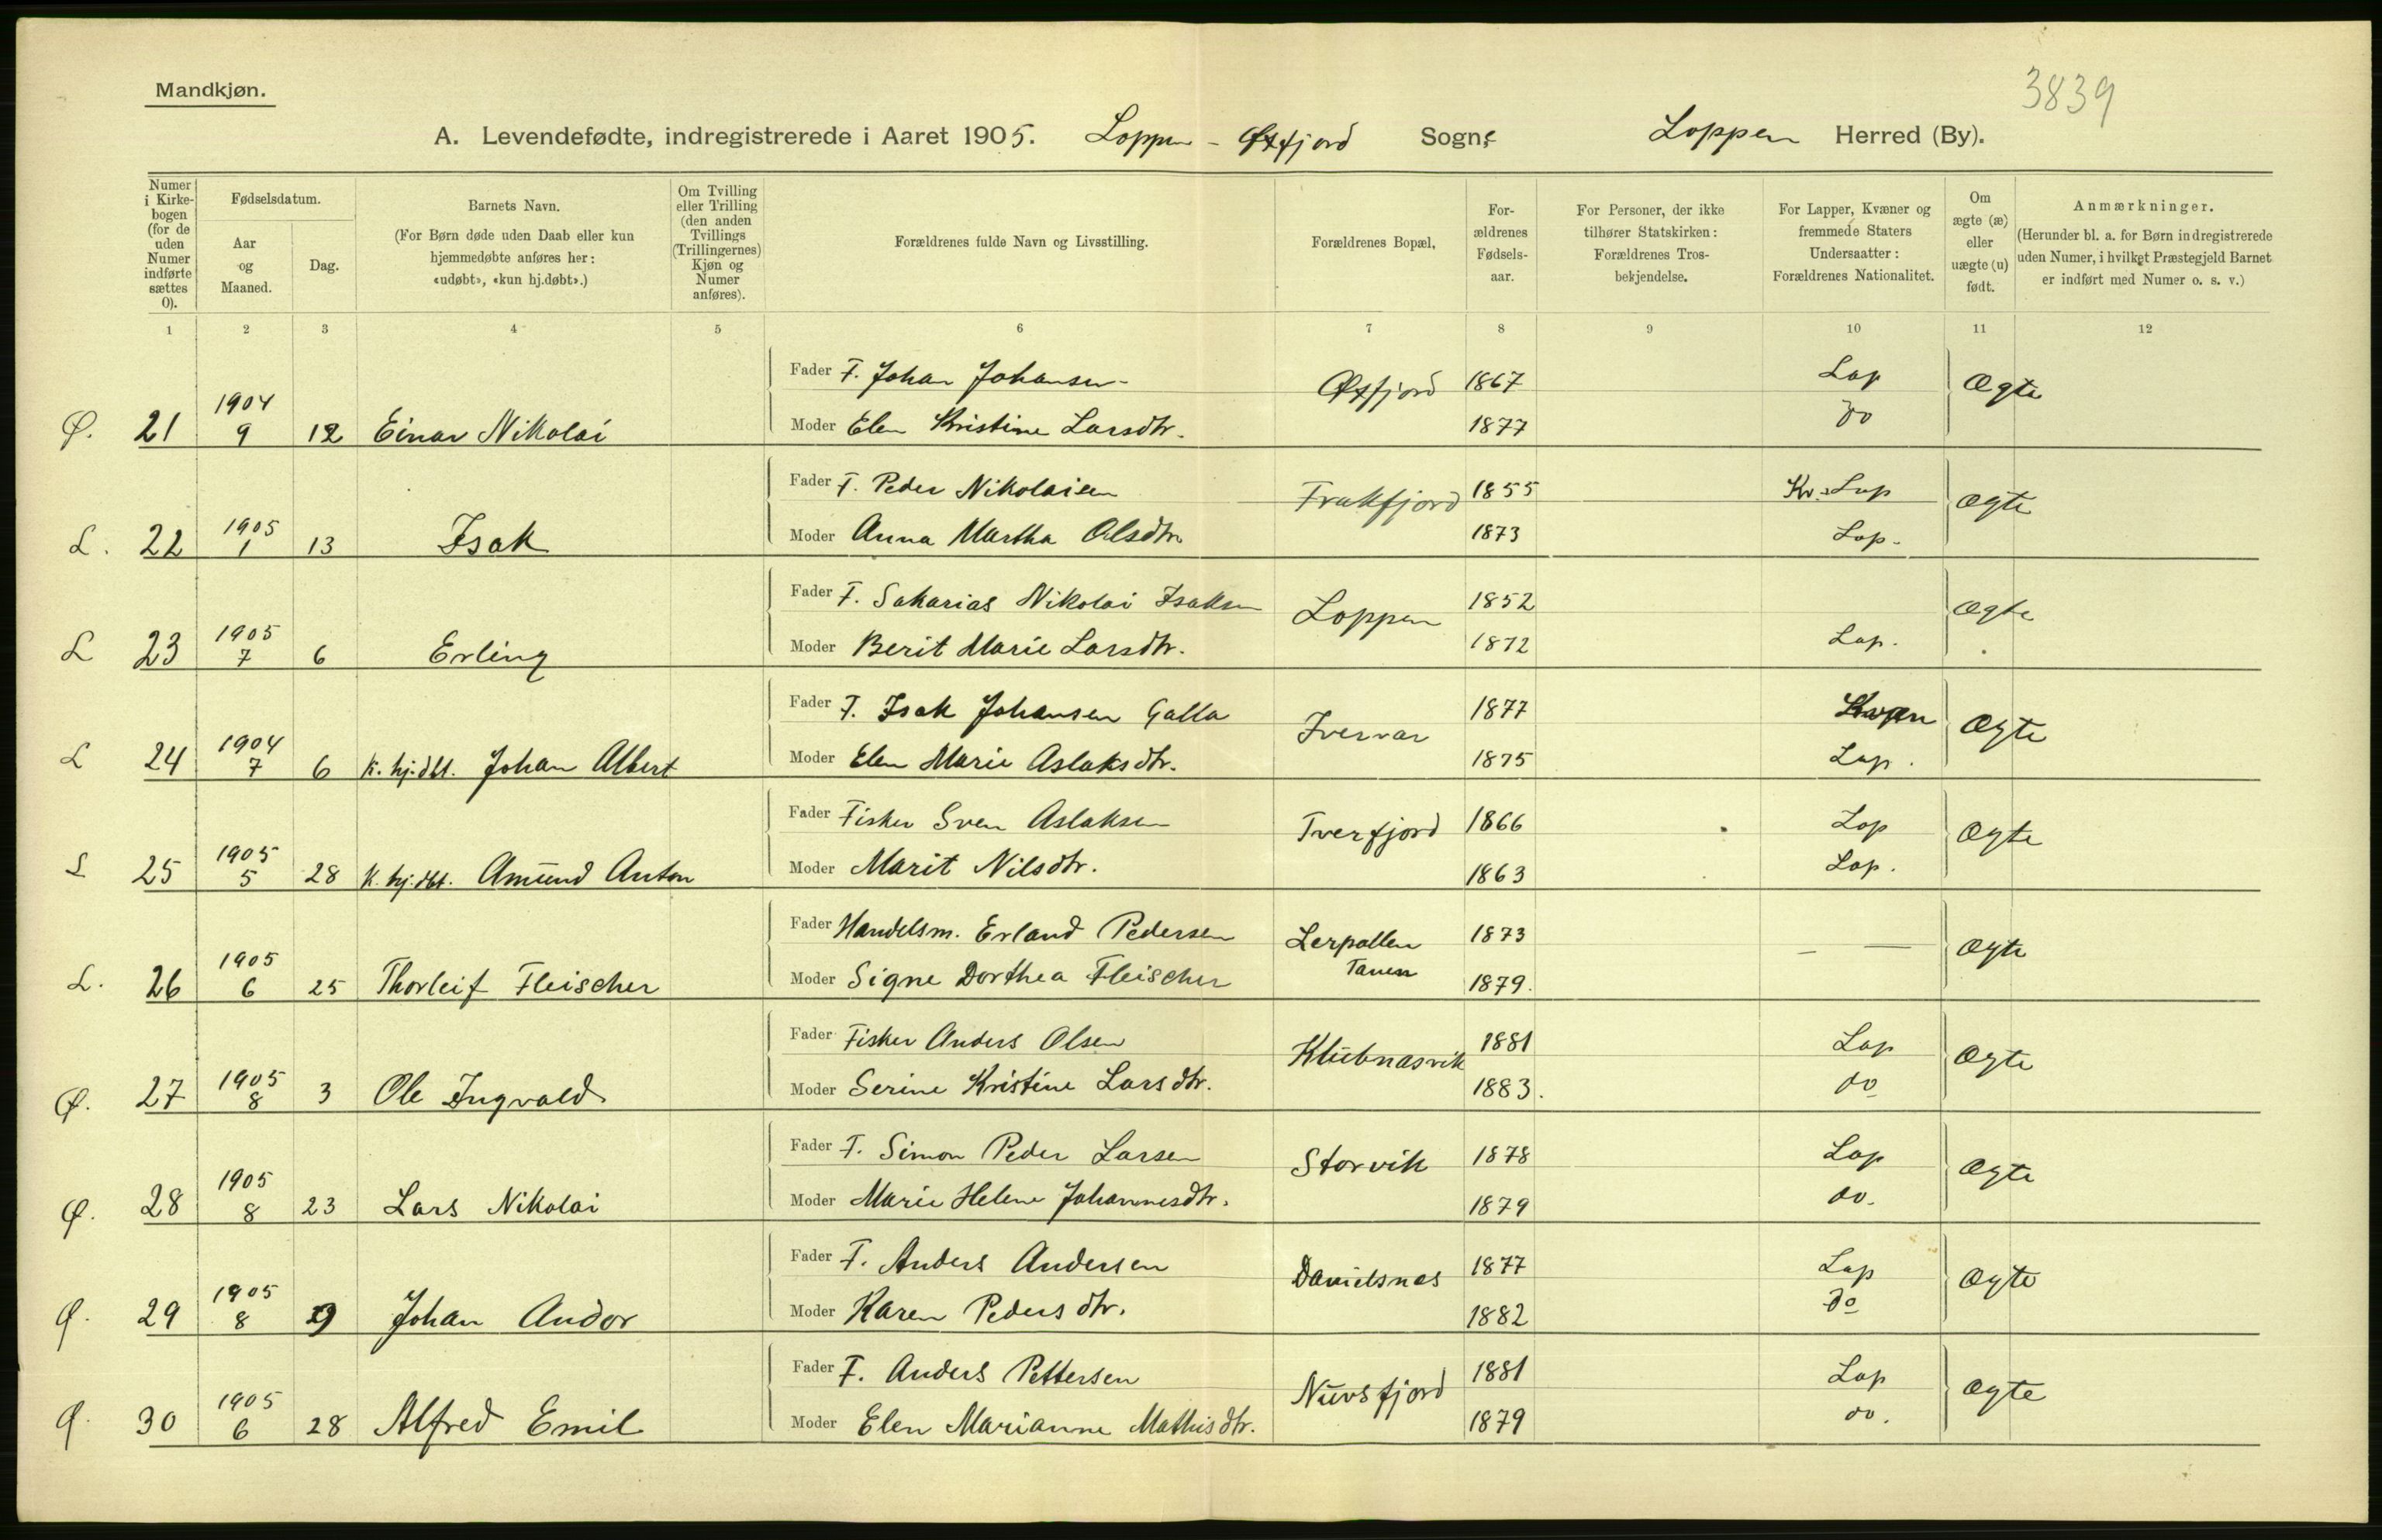 Mandkjøn.
3839
A. Levendefødte, indregistrerede i Aaret 1905. Loppen - Øxfjord Sogne Loppen Herred (By).
Numer i Kirkebogen (for de uden Numer indførte sættes 0).
Fødselsdatum.
Aar og Maaned.
Dag.
Barnets Navn.
(For Børn døde uden Daab eller kun hjemmedøbte anføres her: «udøbt», «kun hj.døbt».)
Om Tvilling eller Trilling (den anden Tvillings (Trillingernes) Kjøn og Numer anføres).
Forældrenes fulde Navn og Livsstilling.
Forældrenes Bopæl,
Forældrenes Fødselsaar.
For Personer, der ikke tilhører Statskirken: Forældrenes Trosbekjendelse.
For Lapper, Kvæner og fremmede Staters Undersaatter: Forældrenes Nationalitet.
Om ægte (æ) eller uægte (u) født.
Anmærkninger.
(Herunder bl. a. for Børn indregistrerede uden Numer, i hvilket Præstegjeld Barnet er indført med Numer o. s. v.)
1 2 3 4 5 6 7 8 9 10 11 12
Fader F. Johan Johansen Øxfjord 1867 Lap Ægte
Ø. 21 1904 9 12 Einar Nikolai Moder Elen Kristine Larsdtr. 1877 do
Fader F. Peder Nikolaisen Frakfjord 1855 Kv.-Lap Ægte
L. 22 1905 1 13 Isak Moder Anna Martha Olsdtr 1873 Lap.
Fader F. Sakarias Nikolai Isaksen Loppen 1852 Ægte
L 23 1905 7 6 Erling Moder Berit Marie Larsdtr. 1872 Lap.
Fader F. Isak Johansen Galla Iversvar 1877 Ægte
L 24 1904 7 6 k. hj.dbt. Johan Albert Moder Elen Marie Aslaksdtr. 1875 Lap.
Fader Fisker Sven Aslaksen Tverfjord 1866 Lap Ægte
L 25 1905 5 28 k. hj.dbt. Amund Anton Moder Marit Nilsdtr. 1863 Lap.
Fader Handelsm. Erland Pedersen Lerpollen 1873 — — Ægte
L. 26 1905 6 25 Thorleif Fleischer Moder Signe Dorthea Fleischer Tanen 1879.
Fader Fisker Anders Olsen Klubnasvik 1881 Lap Ægte
Ø. 27 1905 8 3 Ole Ingvald Moder Serine Kristine Larsdtr. 1883. do
Fader F. Simon Peder Larsen Storvik 1878 Lap Ægte
Ø. 28 1905 8 23 Lars Nikolai Moder Marie Helene Johannesdtr. 1879 do.
Fader F. Anders Andersen Danielsnes 1877 Lap Ægte
Ø. 29 1905 8 9 Johan Andor Moder Karen Pedersdtr. 1882 do
Fader F. Anders Pettersen Nuvsfjord 1881 Lap Ægte
Ø. 30 1905 6 28 Alfred Emil Moder Elen Marianne Mathisdtr. 1879 do.